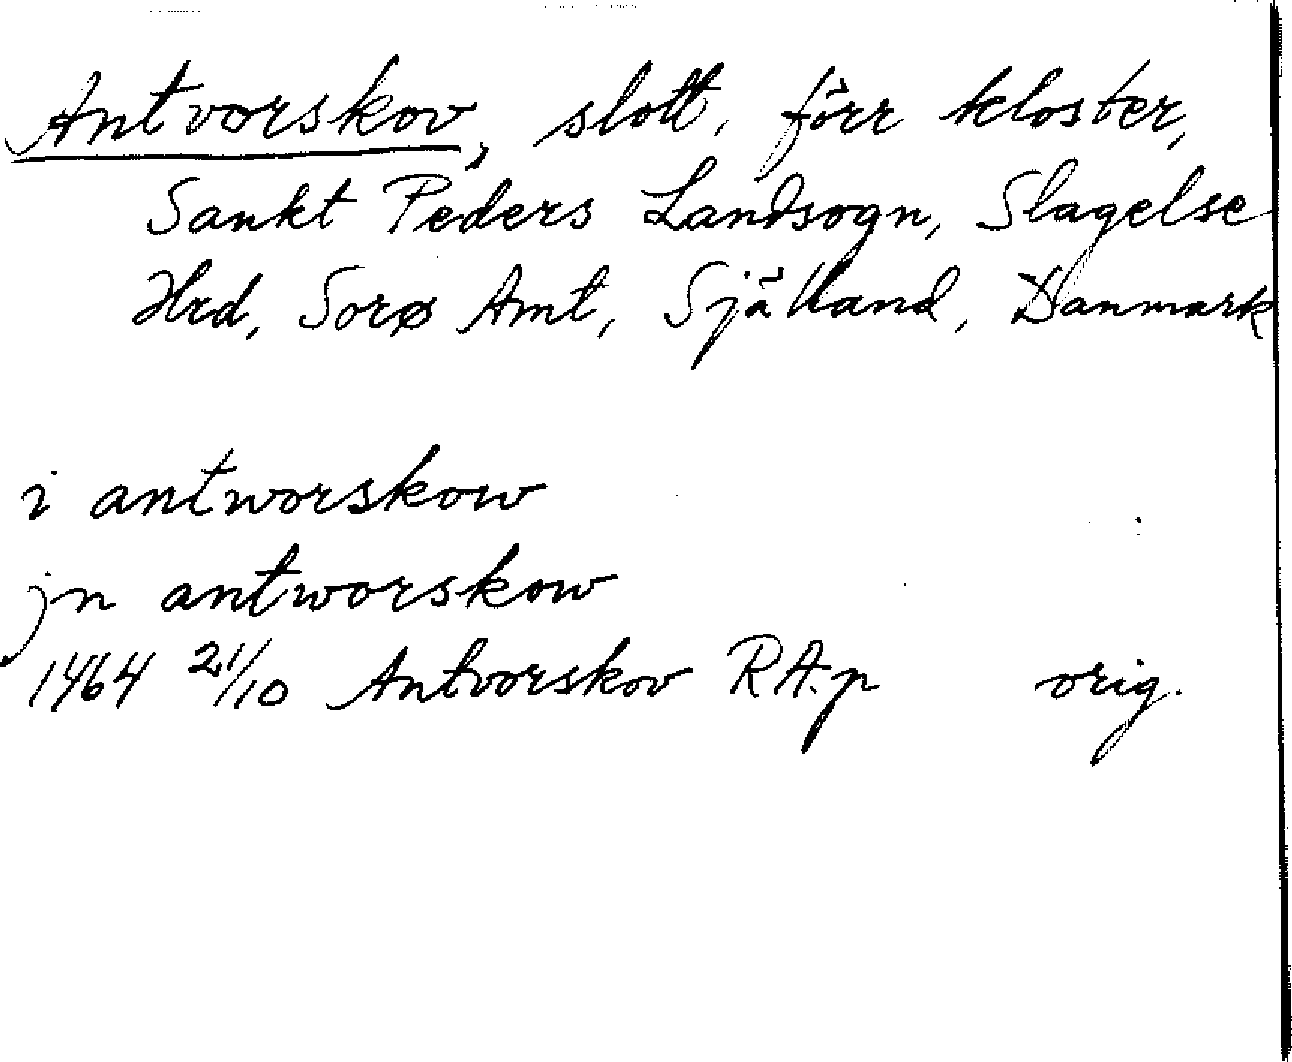 Antvorskov, slott, förr kloster,
Sankt Peders Landsogn, Slagelse
Hrd, Sorø Amt, Själland, Danmark
i antworskow
jn antworskow
1464 21/10 Antvorskov RA.p orig.